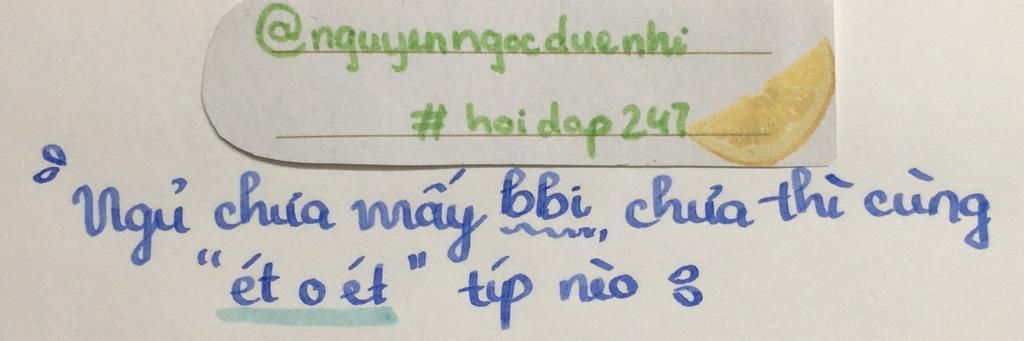 @nguyenngocduenhi
# hoidap247
Ngủ chưa mấy bbi, chưa thì cùng
"ét o ét" típ nèo